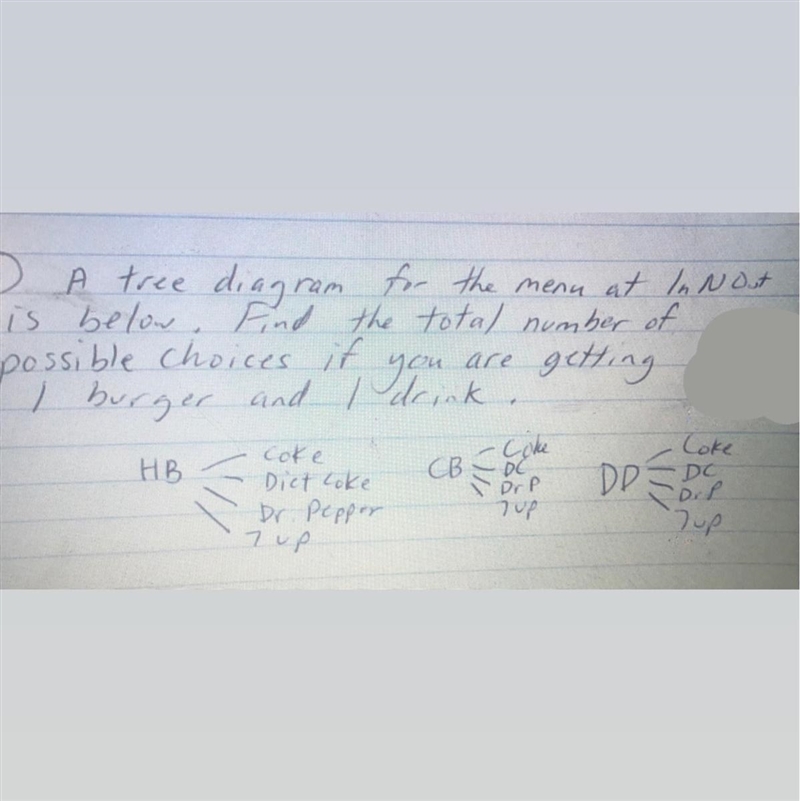 ) A tree diagram for the menu at In N Out
is below. Find the total number of
possible choices if you are getting
1 burger and 1 drink.
HB Coke Diet Coke Dr. Pepper 7 up
CB Coke DC Dr P 7up
DD Coke DC Dr P 7up